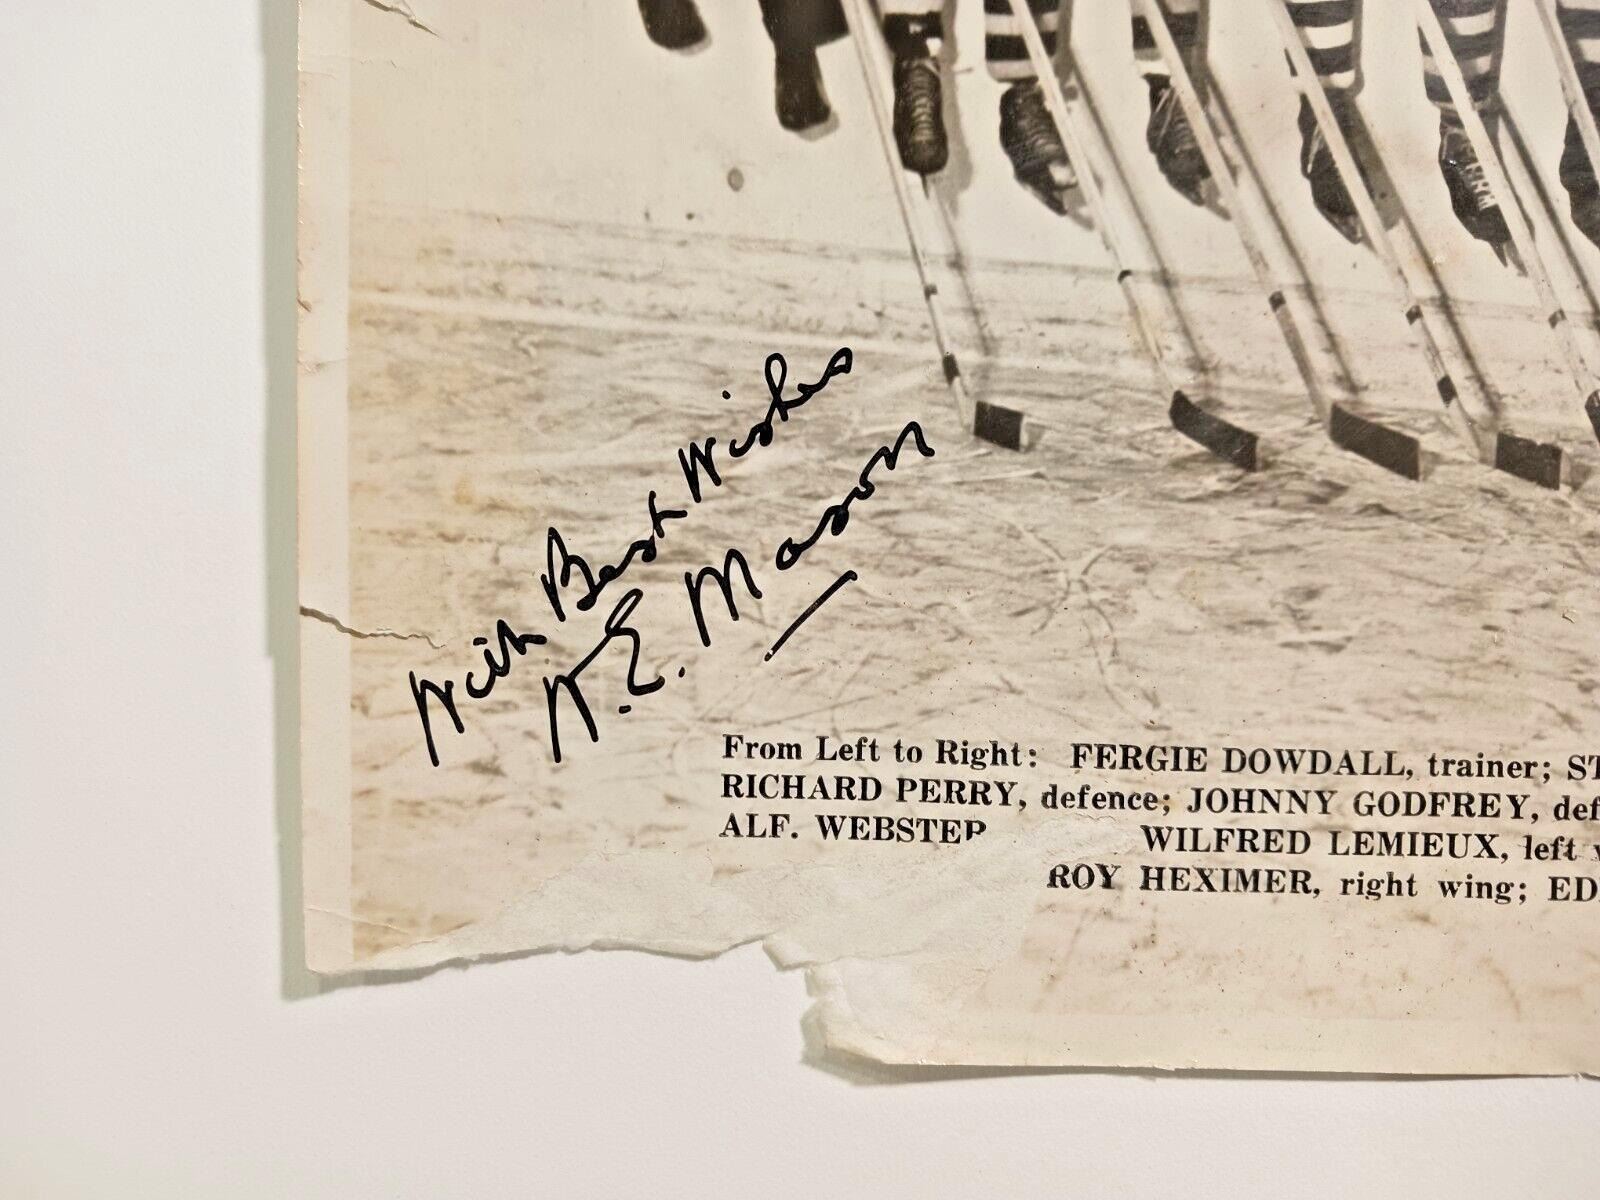 With Best Wishes
W. E. Mason
From Left to Right: FERGIE DOWDALL, trainer; ST
RICHARD PERRY, defence; JOHNNY GODFREY, def
ALF. WEBSTER WILFRED LEMIEUX, left
ROY HEXIMER, right wing; ED